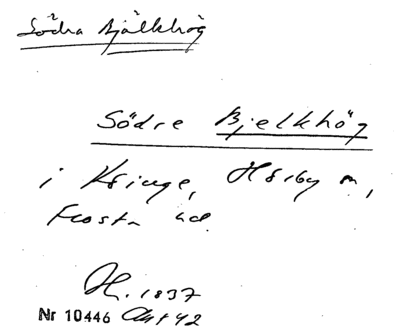 Södra Bjälkhög
Södre Bjelkhög
i Kringe, Hörby sn,
Frosta hd.
H. 1837
Nr 10446 Akt 42